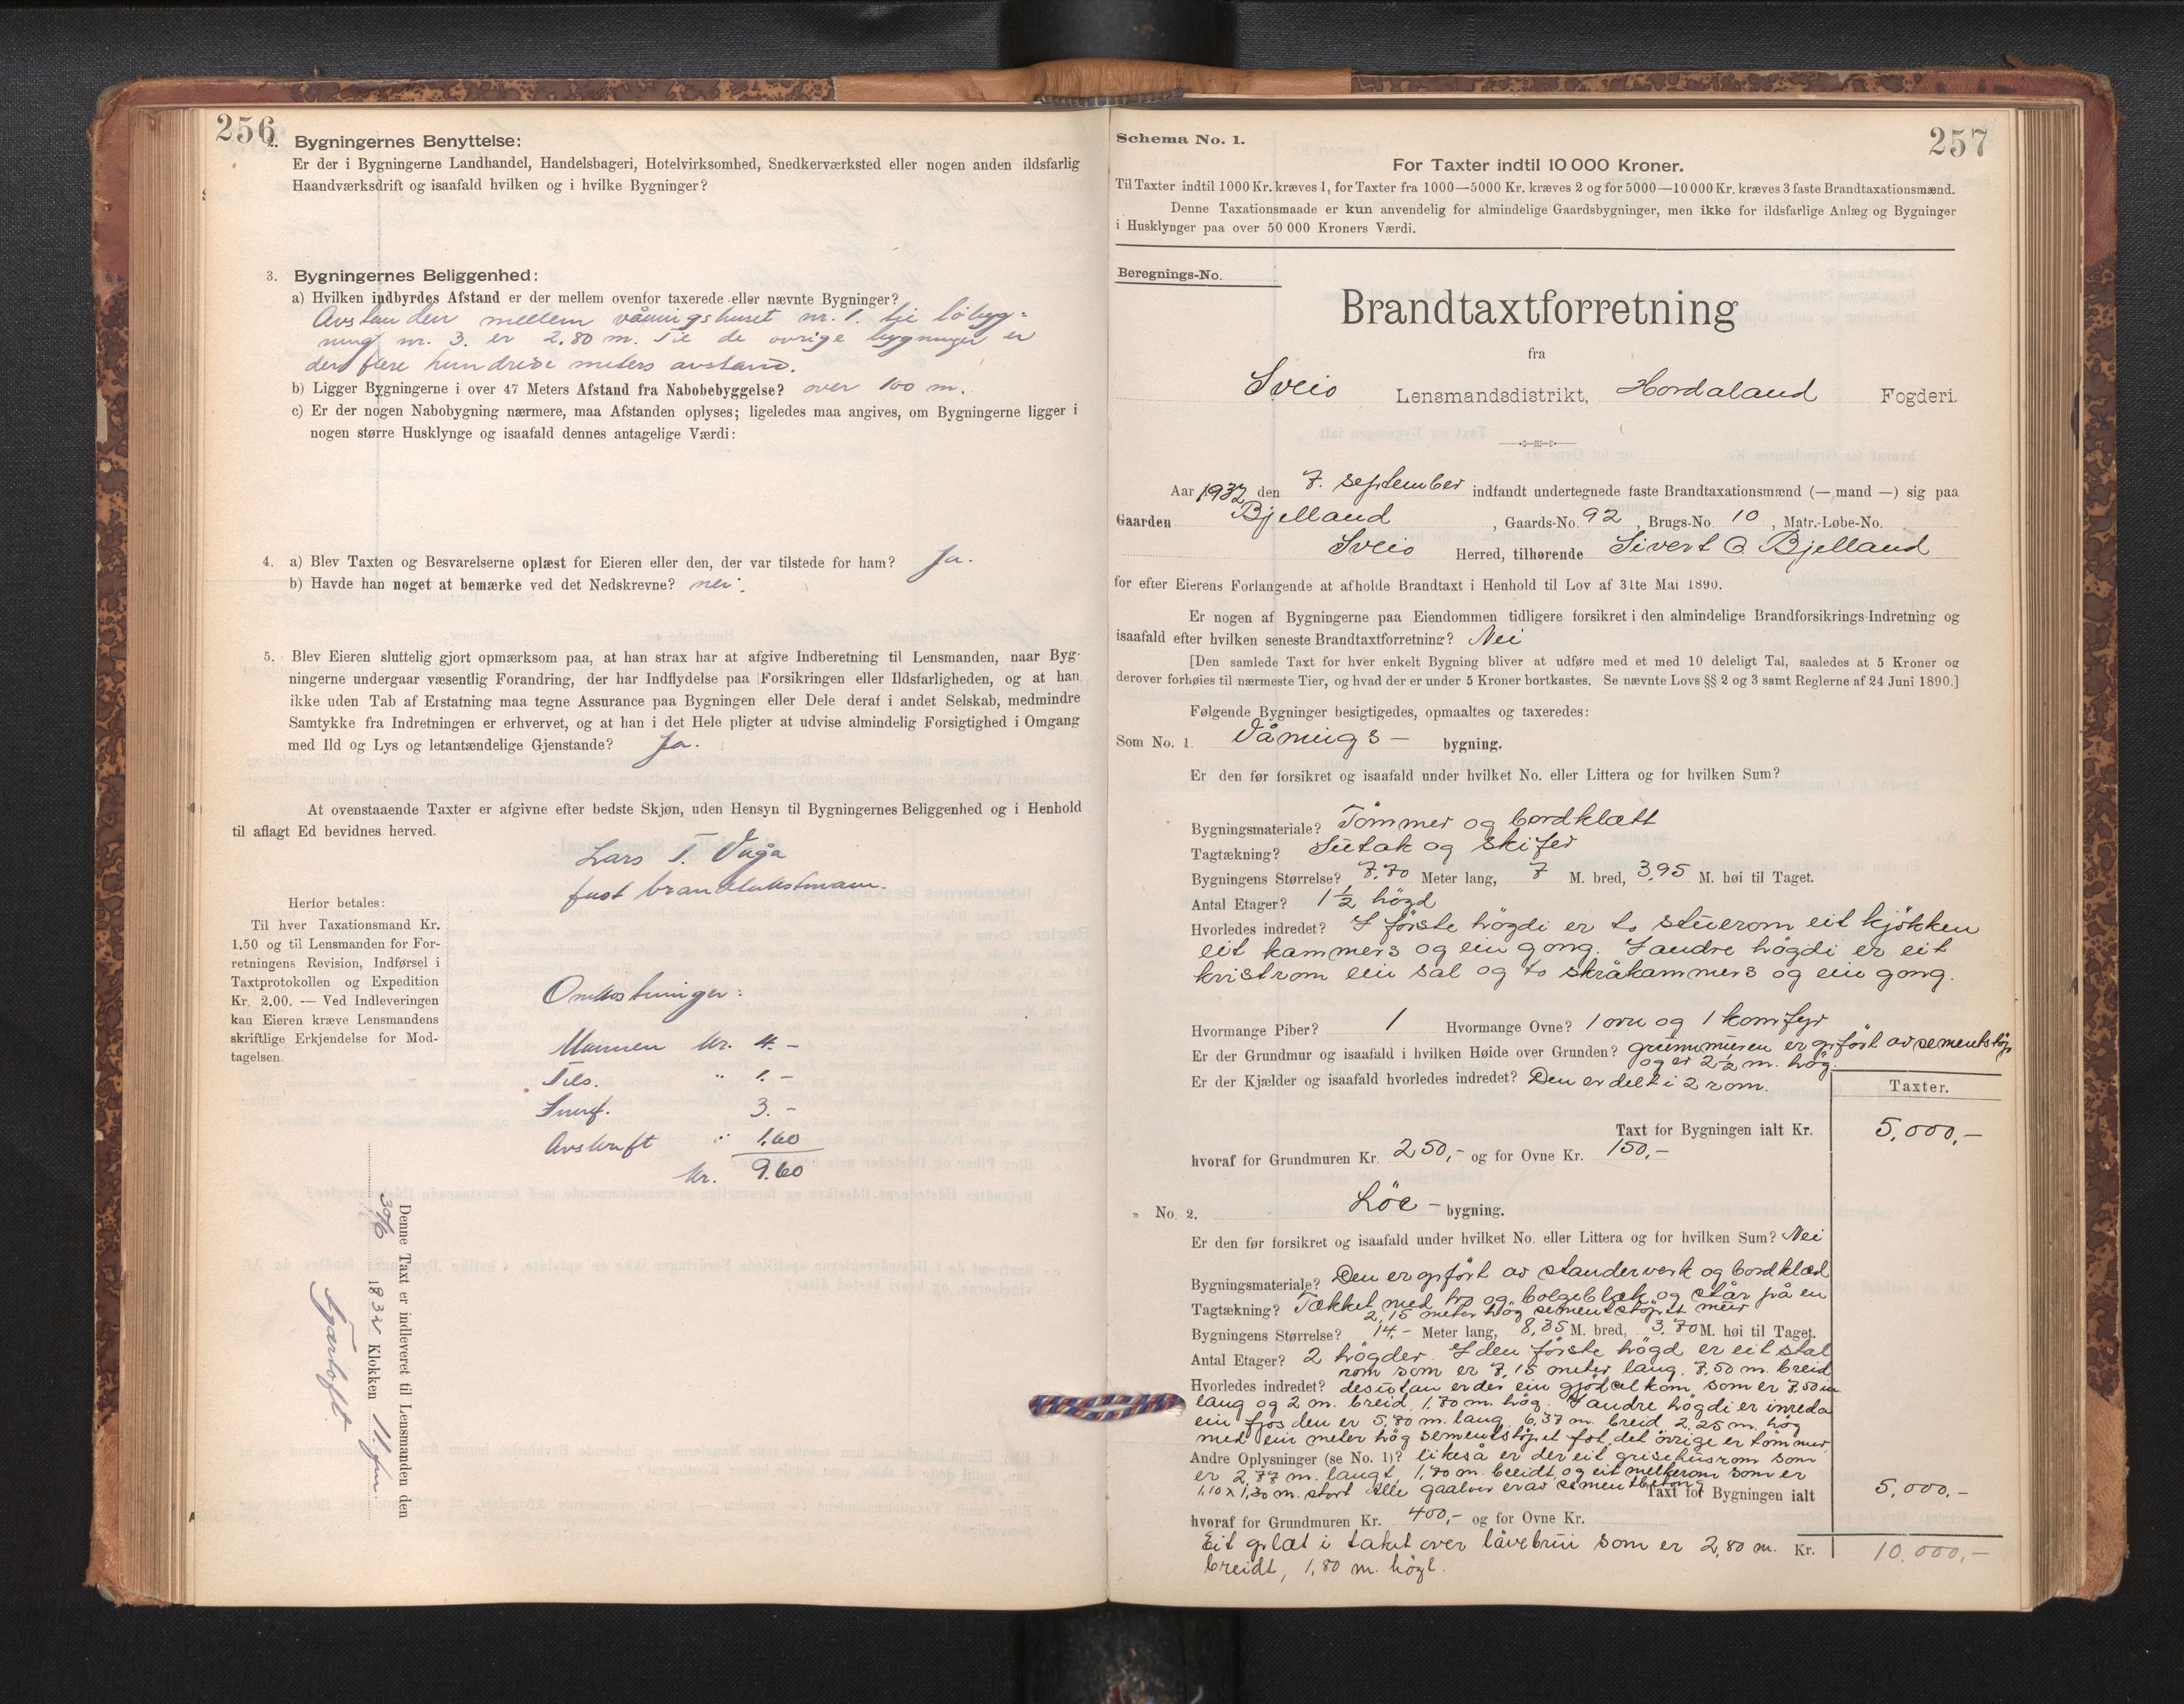 256
2. Bygningernes Benyttelse:
Er der i Bygningerne Landhandel, Handelsbageri, Hotelvirksomhed, Snedkerværksted eller nogen anden ildsfarlig
Haandværksdrift og isaafald hvilken og i hvilke Bygninger?
3. Bygningernes Beliggenhed:
a) Hvilken indbyrdes Afstand er der mellem ovenfor taxerede eller nævnte Bygninger?
Avstanden mellem våningshuset nr. 1. til löbyg-
ning nr. 3. er 2.80 m. Til de øvrige bygninger er
der flere hundrede meters avstand.
b) Ligger Bygningerne i over 47 Meters Afstand fra Nabobebyggelse? over 100 m.
c) Er der nogen Nabobygning nærmere, maa Afstanden oplyses; ligeledes maa angives, om Bygningerne ligger i
nogen større Husklynge og isaafald dennes antagelige Værdi:
4. a) Blev Taxten og Besvarelserne oplæst for Eieren eller den, der var tilstede for ham? Ja.
b) Havde han noget at bemærke ved det Nedskrevne? nei.
5. Blev Eieren sluttelig gjort opmærksom paa, at han strax har at afgive Indberetning til Lensmanden, naar Byg-
ningerne undergaar væsentlig Forandring, der har Indflydelse paa Forsikringen eller Ildsfarligheden, og at han
ikke uden Tab af Erstatning maa tegne Assurance paa Bygningen eller Dele deraf i andet Selskab, medmindre
Samtykke fra Indretningen er erhvervet, og at han i det Hele pligter at udvise almindelig Forsigtighed i Omgang
med Ild og Lys og letantændelige Gjenstande? Ja.
At ovenstaaende Taxter er afgivne efter bedste Skjøn, uden Hensyn til Bygningernes Beliggenhed og i Henhold
til aflagt Ed bevidnes herved.
Lars T. Våga
fast brandtakstmann.
Herfor betales:
Til hver Taxationsmand Kr.
1.50 og til Lensmanden for For-
retningens Revision, Indførsel i
Taxtprotokollen og Expedition
Kr. 2.00. — Ved Indleveringen
kan Eieren kræve Lensmandens
skriftlige Erkjendelse for Mod-
tagelsen.
Omkostninger:
Mannen kr. 4.-
Tils. " 1.-
Innf. 3.-
Avskrift " 1.60
kr. 9.60
Denne Taxt er indleveret til Lensmanden den
30/6 1932 Klokken 11 fm.
Schema No. 1.
257
For Taxter indtil 10 000 Kroner.
Til Taxter indtil 1000 Kr. kræves 1, for Taxter fra 1000—5000 Kr. kræves 2 og for 5000—10 000 Kr. kræves 3 faste Brandtaxationsmænd.
Denne Taxationsmaade er kun anvendelig for almindelige Gaardsbygninger, men ikke for ildsfarlige Anlæg og Bygninger
i Husklynger paa over 50 000 Kroners Værdi.
Beregnings-No.
Brandtaxtforretning
fra
Sveio Lensmandsdistrikt, Hordaland Fogderi.
Aar 1932 den 7. september indfandt undertegnede faste Brandtaxationsmænd (— mand —) sig paa
Gaarden Bjelland, Gaards-No. 92, Brugs-No. 10, Matr.-Løbe-No.
Sveio Herred, tilhørende Sivert O Bjelland
for efter Eierens Forlangende at afholde Brandtaxt i Henhold til Lov af 31te Mai 1890.
Er nogen af Bygningerne paa Eiendommen tidligere forsikret i den almindelige Brandforsikrings-Indretning og
isaafald efter hvilken seneste Brandtaxtforretning? Nei
[Den samlede Taxt for hver enkelt Bygning bliver at udføre med et med 10 deleligt Tal, saaledes at 5 Kroner og
derover forhøies til nærmeste Tier, og hvad der er under 5 Kroner bortkastes. Se nævnte Lovs §§ 2 og 3 samt Reglerne af 24 Juni 1890.]
Følgende Bygninger besigtigedes, opmaaltes og taxeredes:
Som No. 1. Vånings — bygning.
Er den før forsikret og isaafald under hvilket No. eller Littera og for hvilken Sum?
Bygningsmateriale? Tömmer og bordklætt
Tagtækning? Sutak og skifer
Bygningens Størrelse? 7.70 Meter lang, 7 M. bred, 3.95 M. høi til Taget.
Antal Etager? 1 ½ högd
Hvorledes indredet? I förste högdi er to stuerom eit kjökken
eit kammers og ein gong. I andre högdi er eit
kvistrom ein sal og to skråkammers og ein gong.
Hvormange Piber? 1 Hvormange Ovne? 1 ovn og 1 komfyr
Er der Grundmur og isaafald i hvilken Høide over Grunden? grunnmuren er opfört av sementstöp
og er 2½ m. hög.
Er der Kjælder og isaafald hvorledes indredet? Den er delt i 2 rom.
Taxter.
Taxt for Bygningen ialt Kr. 5,000,—
hvoraf for Grundmuren Kr. 250,- og for Ovne Kr. 150,—
" No. 2. Löe — bygning.
Er den før forsikret og isaafald under hvilket No. eller Littera og for hvilken Sum? Nei
Bygningsmateriale? Den er opfört av standerverk og bordklæd
Tagtækning? Tækket med tro og bolgeblek og står på en
2,15 meter hög sementstöpt mur
Bygningens Størrelse? 14.- Meter lang, 8,35 M. bred, 3.70 M. høi til Taget.
Antal Etager? 2 högder. I den förste högd er eit stal
rom som er 7,15 meter lang, 7.50 m. breid
Hvorledes indredet? desutan er der ein gjödselkom som er 7.50 m
lang og 2 m. breid, 1,70 m. hög. I andre högdi er inreda
ein fjos den er 5,70 m. lang, 6,37 m. breid 2,25 m. hög
med ein meter hög sementstöpt fot, det övrige er tömmer,
Andre Oplysninger (se No. 1)? likeså er der eit grisehusrom som
er 2,77 m. langt, 1,70 m. breidt, og eit melkerom som er
1,10 x 1,30 m. stort Alle gaalver er av sementbetong
Taxt for Bygningen ialt 5,000.—
hvoraf for Grundmuren Kr. 400,- og for Ovne Kr.
Eit oplæt i taket over låvebrui som er 2,80 m. Kr. 10.000,—
breidt, 1,80 m. högt.